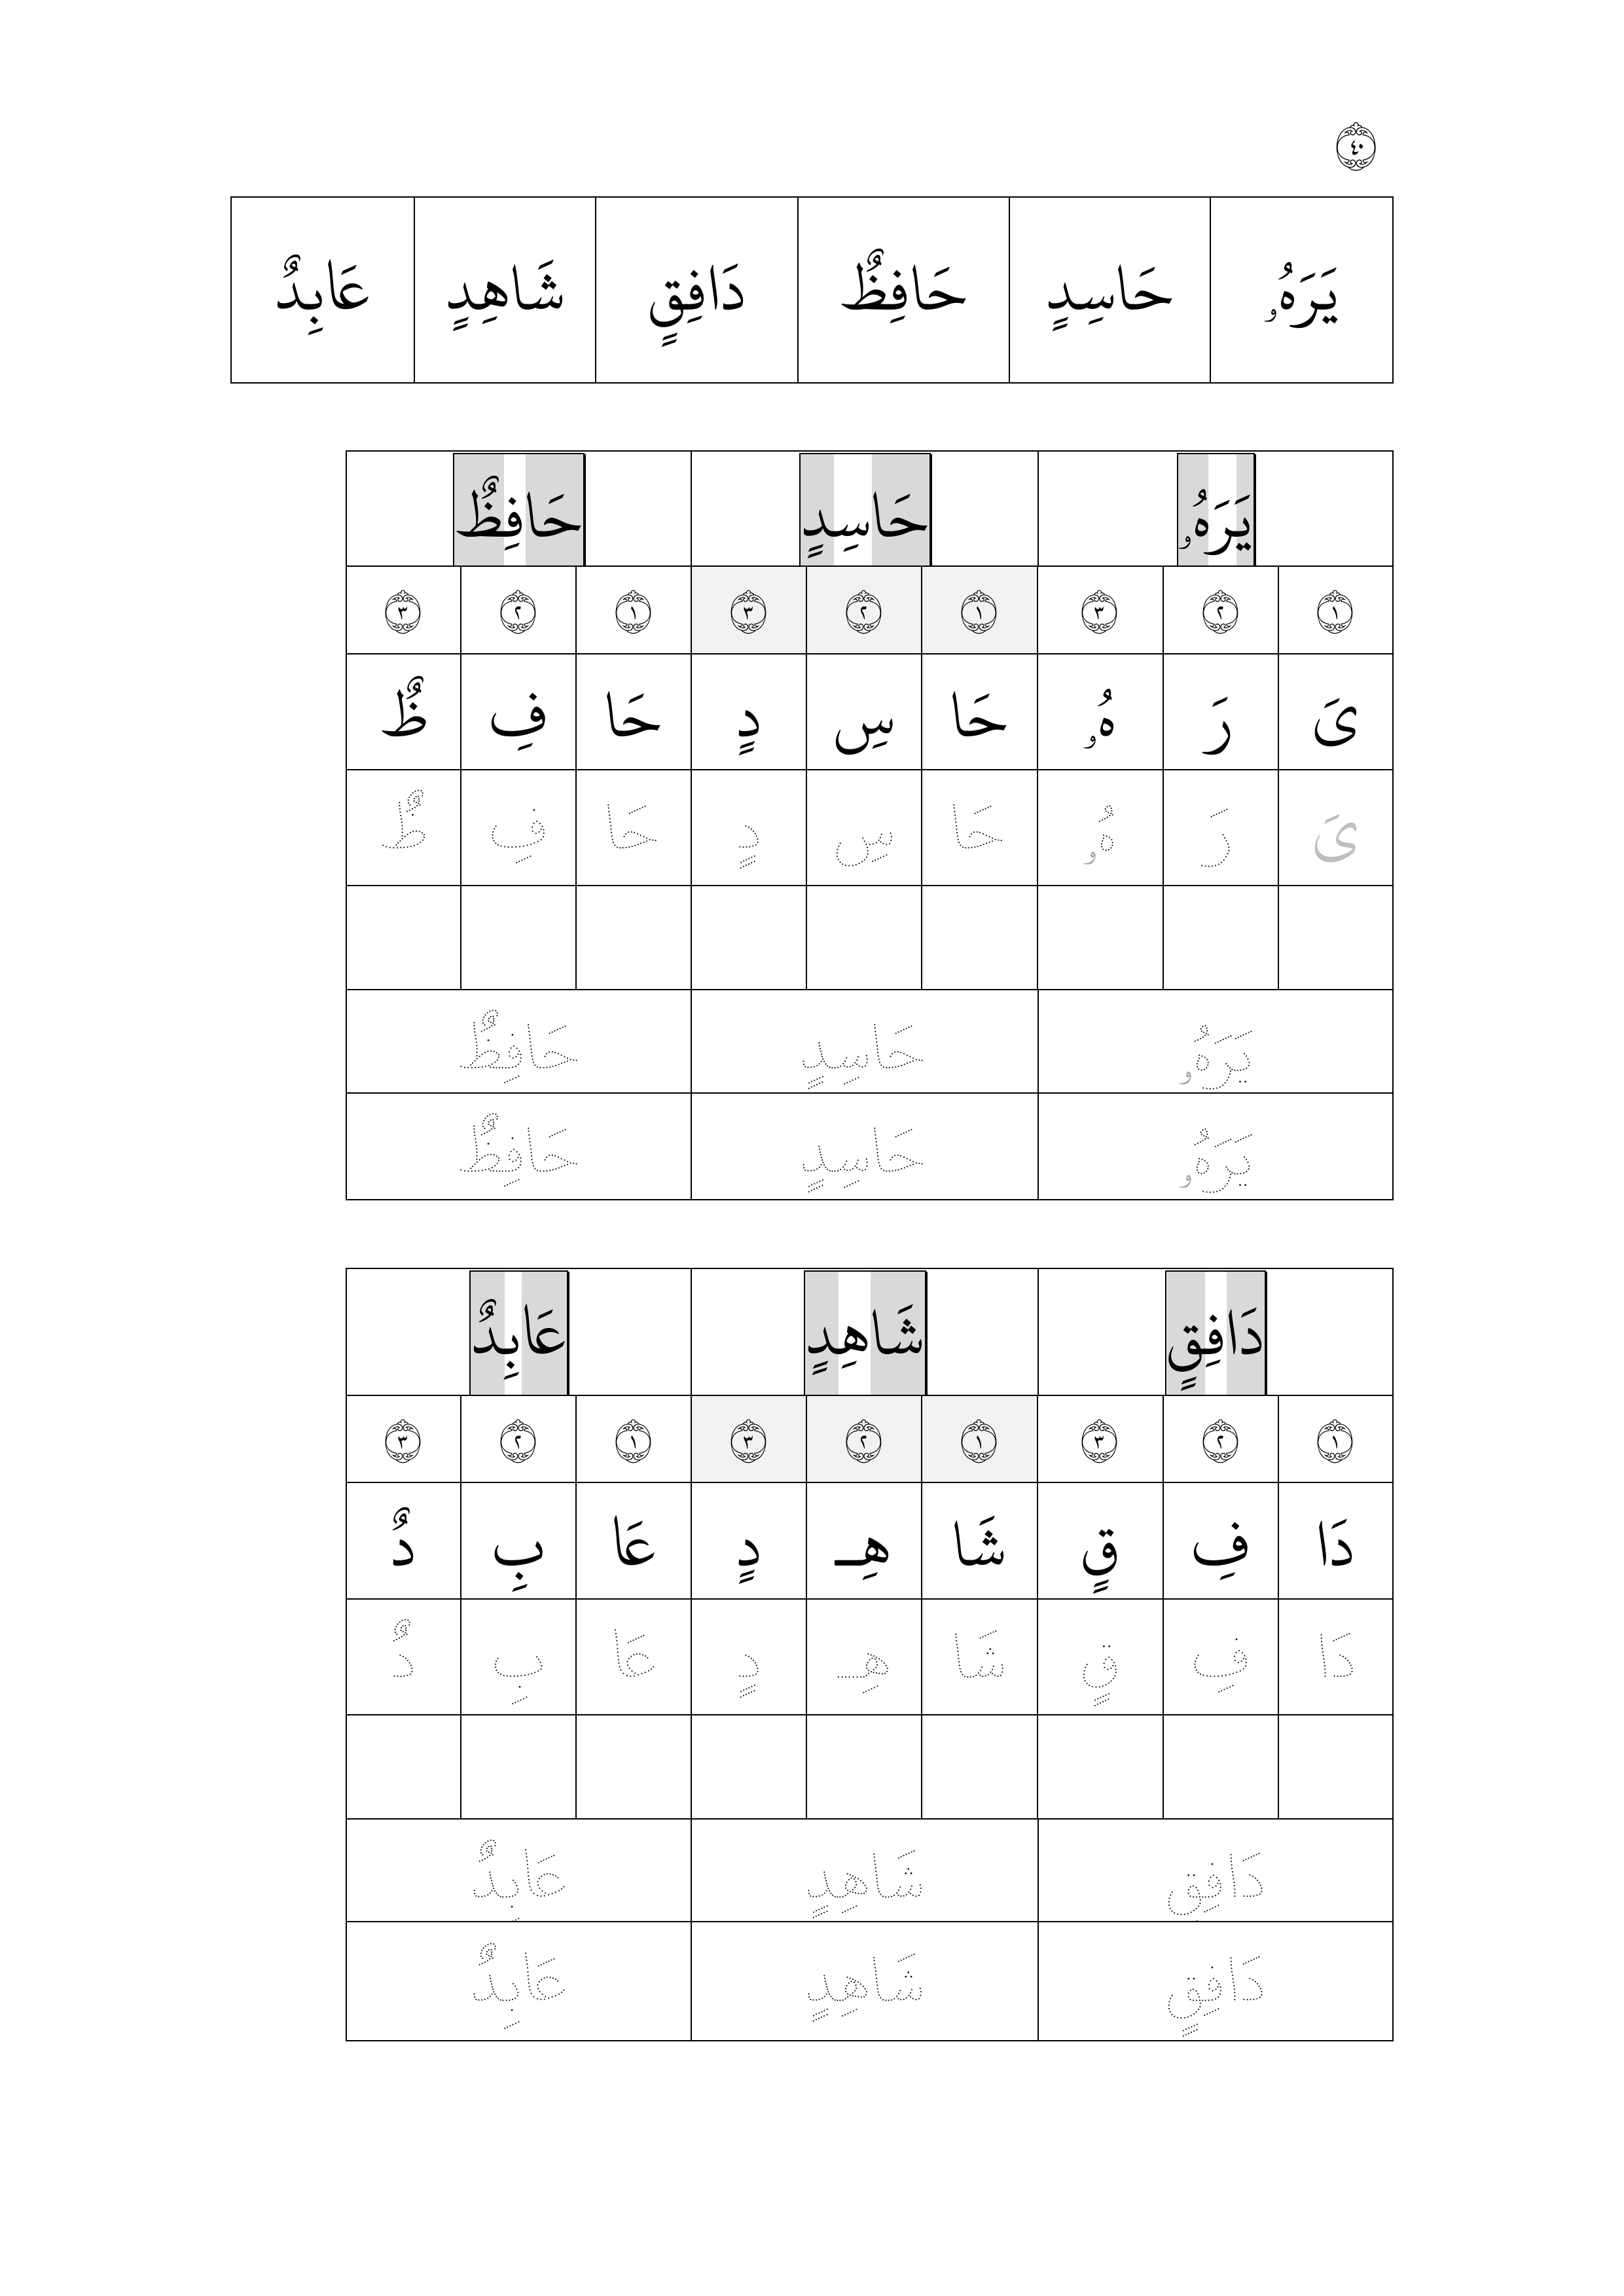 ٤٠
يَرَهُۥ حَاسِدٍ حَافِظٌ دَافِقٍ شَاهِدٍ عَابِدٌ
يَرَهُۥ حَاسِدٍ حَافِظٌ
١ ٢ ٣ ١ ٢ ٣ ١ ٢ ٣
ىَ رَ هُۥ حَا سِ دٍ حَا فِ ظٌ
ىَ رَ هُۥ حَا سِ دٍ حَا فِ ظٌ
يَرَهُۥ حَاسِدٍ حَافِظٌ
يَرَهُۥ حَاسِدٍ حَافِظٌ
دَافِقٍ شَاهِدٍ عَابِدٌ
١ ٢ ٣ ١ ٢ ٣ ١ ٢ ٣
دَا فِ قٍ شَا هِـ دٍ عَا بِ دٌ
دَا فِ قٍ شَا هِـ دٍ عَا بِ دٌ
دَافِقٍ شَاهِدٍ عَابِدٌ
دَافِقٍ شَاهِدٍ عَابِدٌ